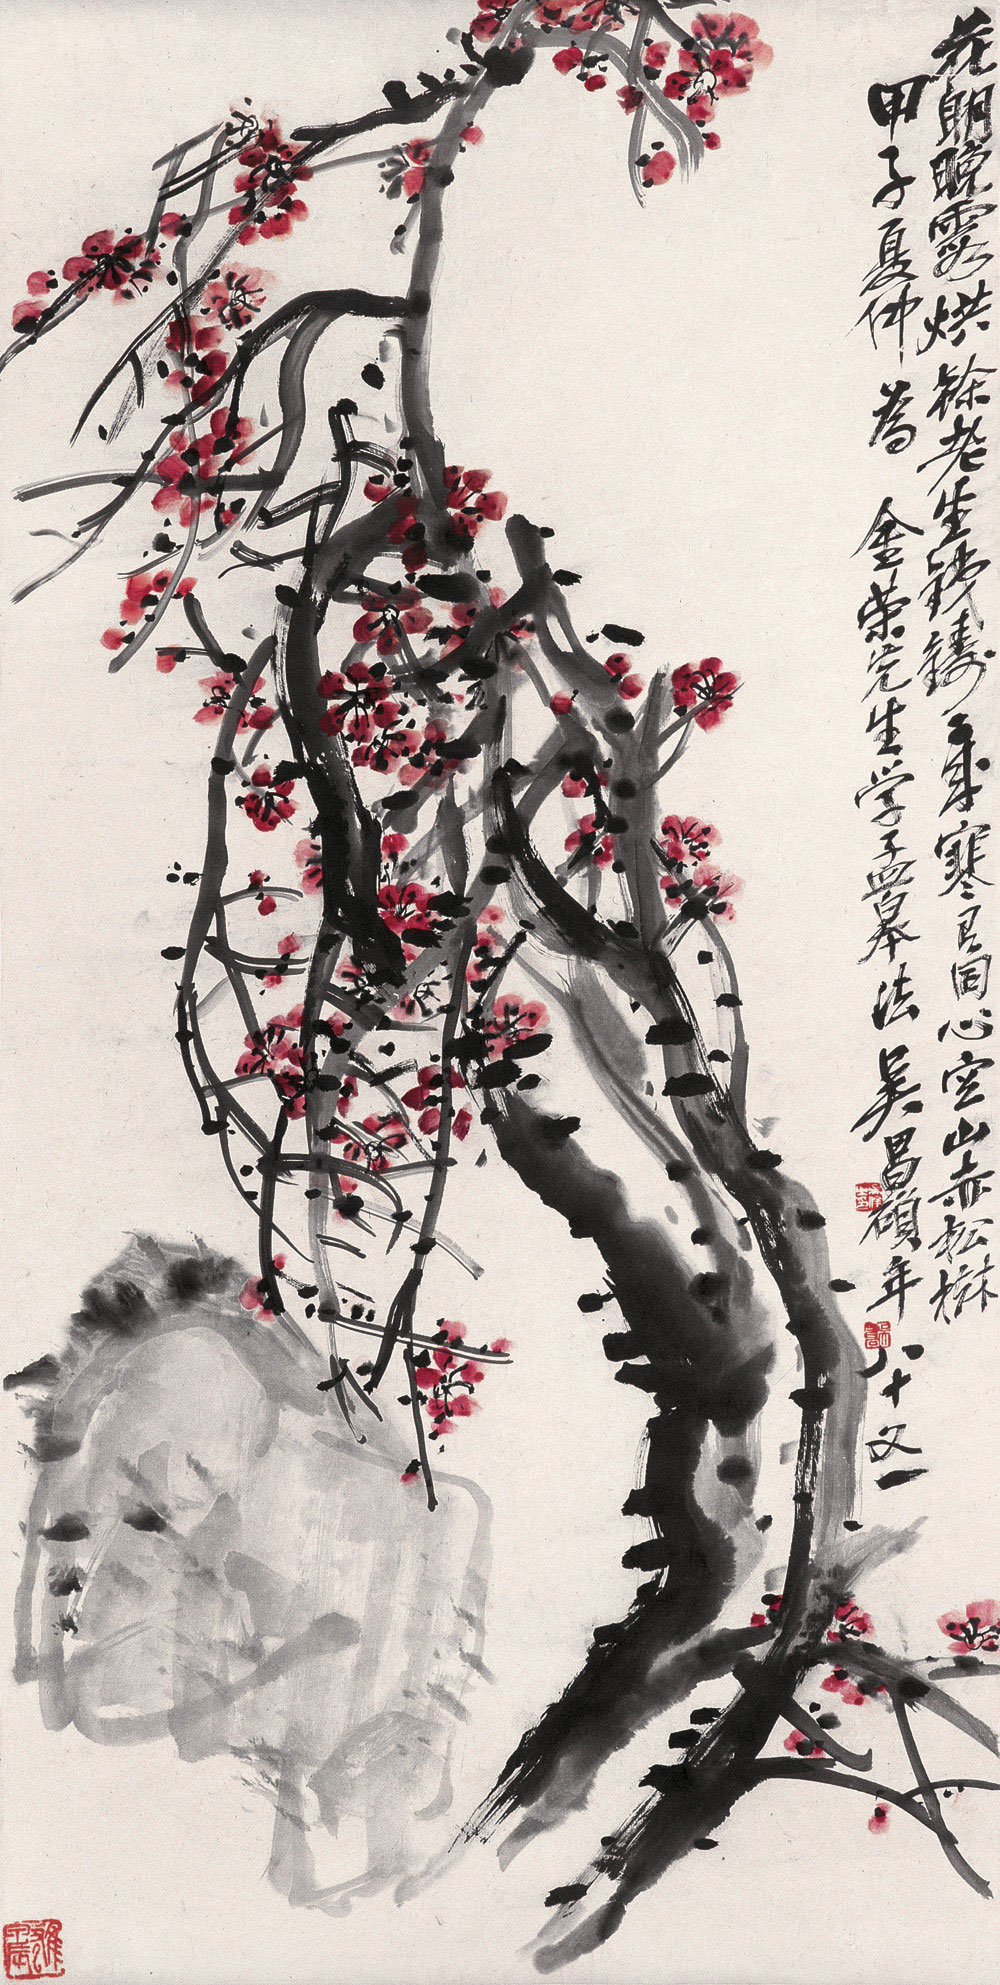 花明晚霞烘 榦老生鐵鑄 歲寒有同心 空山赤松樹
甲子夏仲為 金榮先生學孟皋法 吳昌碩年八十又一